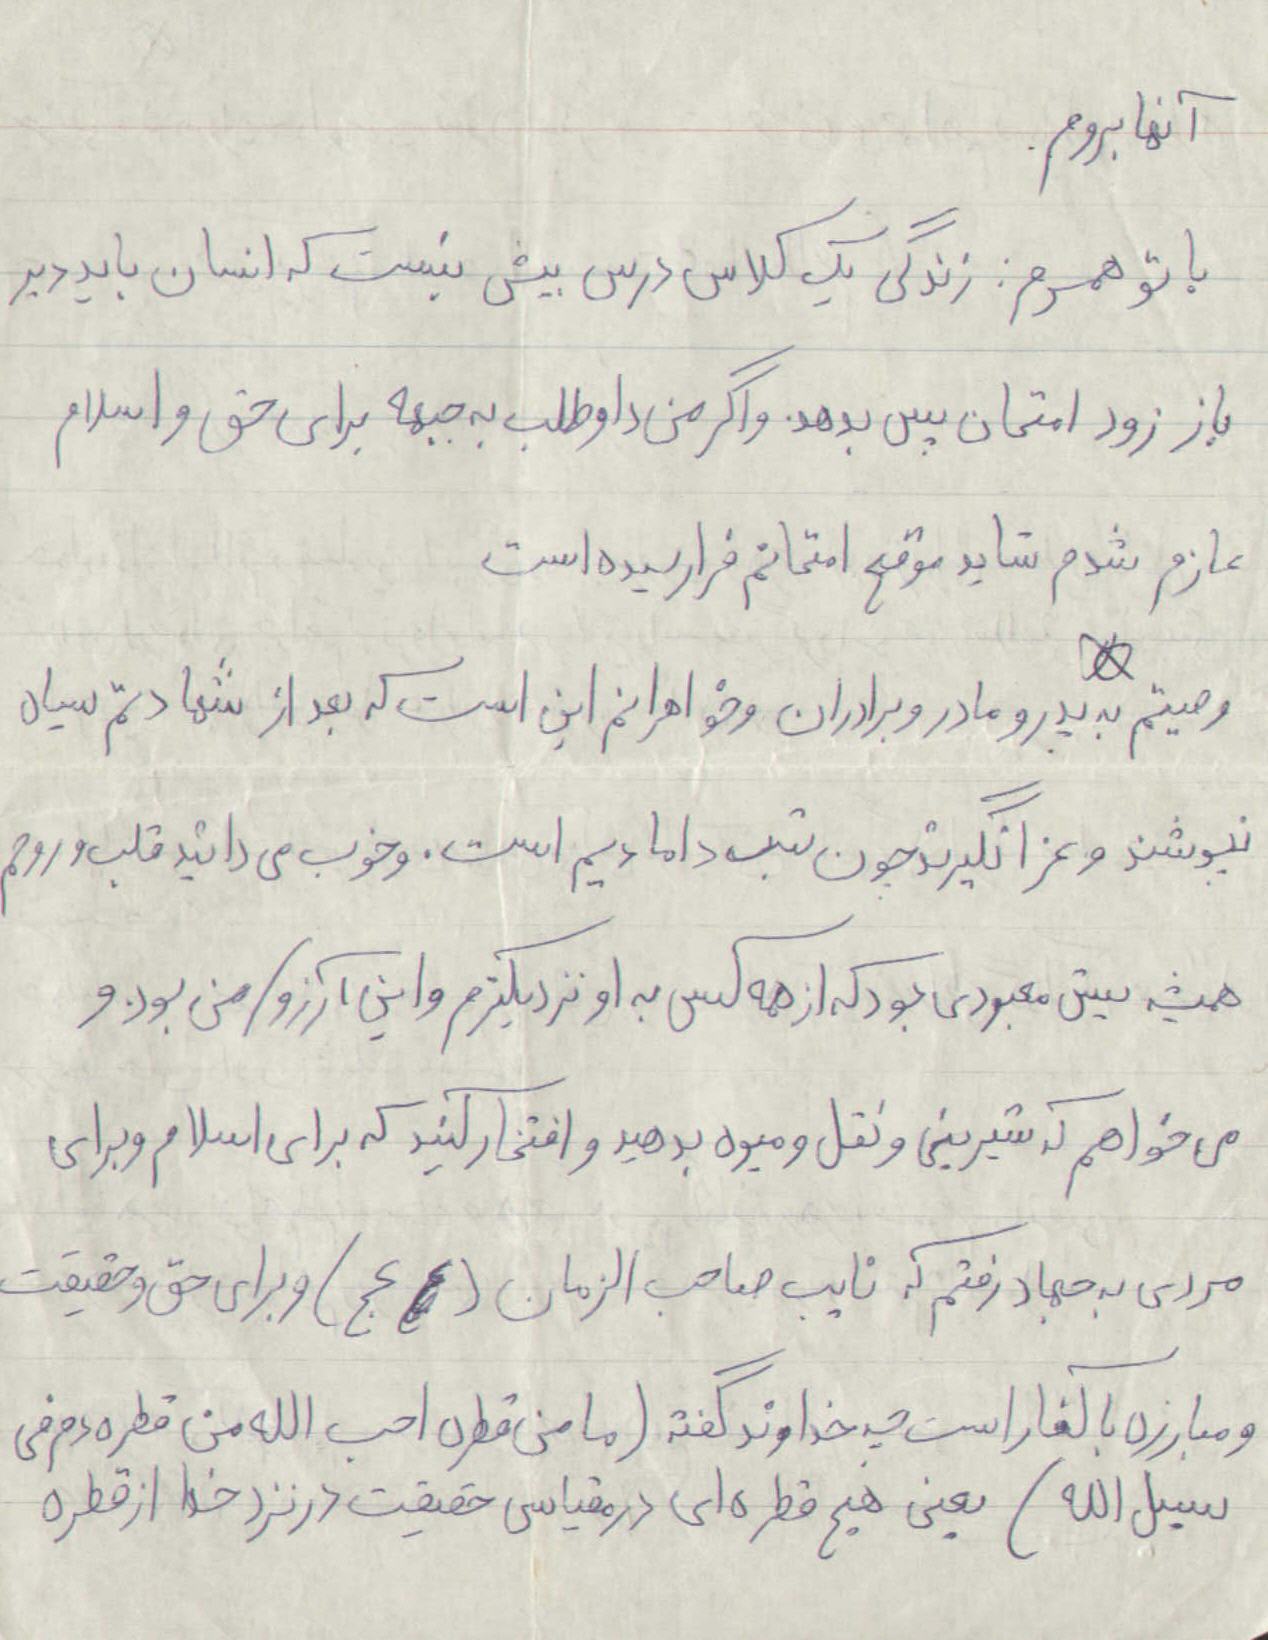 آنها بروم.
با تو همسرم: زندگی یک کلاس درس بیش نیست که انسان باید دیر
یا زود امتحان پس بدهد. و اگر من داوطلب به جبهه برای حق و اسلام
عازم شدم شاید موقع امتحانم فرا رسیده است
وصیتم به پدر و مادر و برادران و خواهرانم این است که بعد از شهادتم سیاه
نپوشند و عزا نگیرند چون شب دامادیم است. و خوب می دانید قلب و روحم
همیشه پیش معبودی بود که از همه کس به او نزدیکترم و این آرزو من بود. و
می خواهم که شیرینی و نقل و میوه بدهید و افتخار کنید که برای اسلام و برای
مردی به جهاد رفتم که نایب صاحب الزمان (عج) و برای حق و حقیقت
و مبارزه با کفار است چه خداوند گفته (ما من قطره احب الله من قطره دم فی
سبیل الله) یعنی هیچ قطره ای در مقیاس حقیقت در نزد خدا از قطره